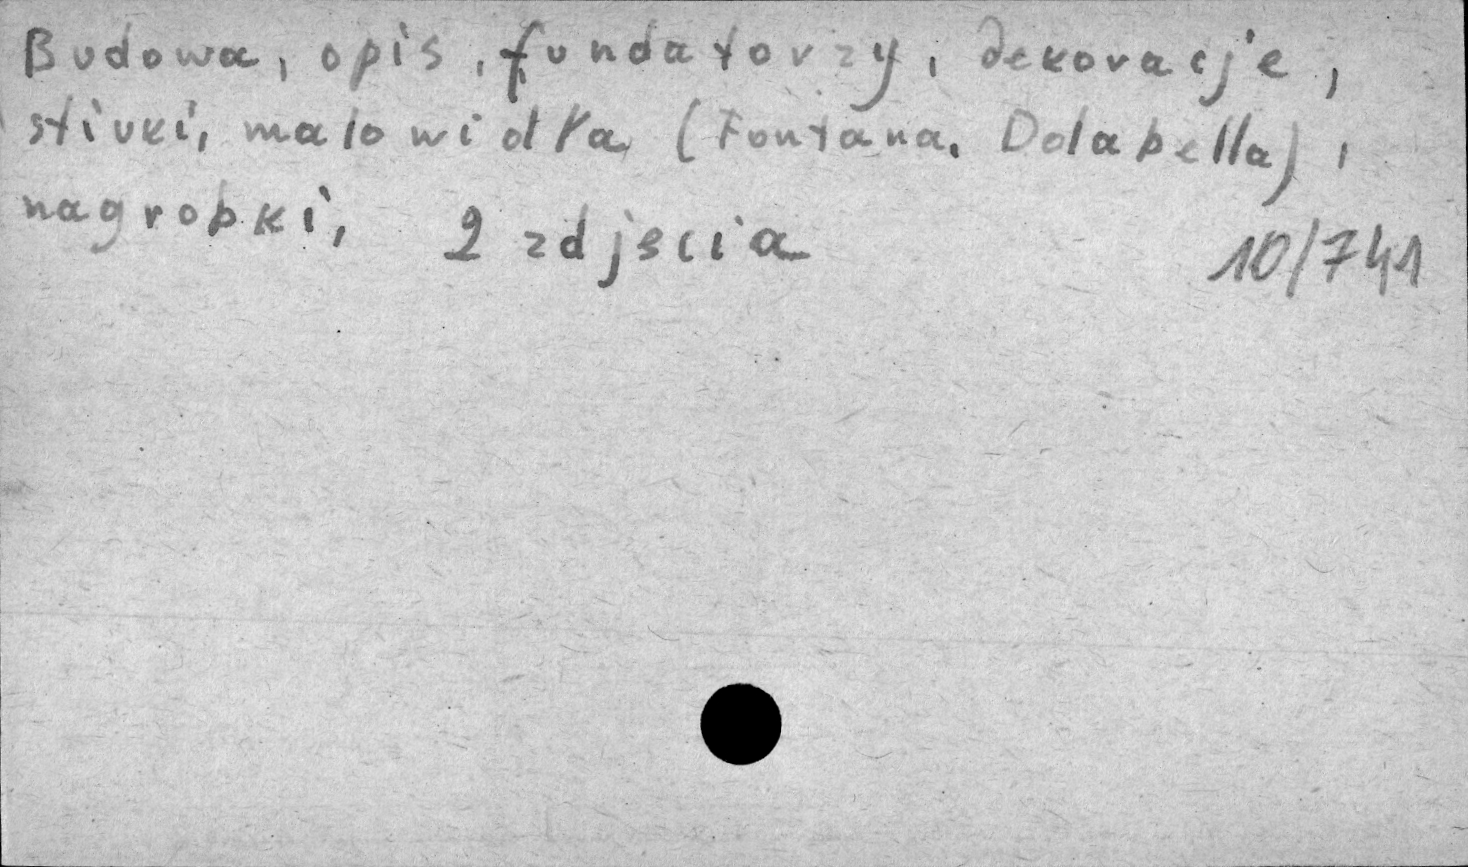 Budowa, opis, fundatorzy, dekoracje,
stiuki, malowidła (Fontana, Dolabella),
nagrobki, 2 zdjecia 10/741